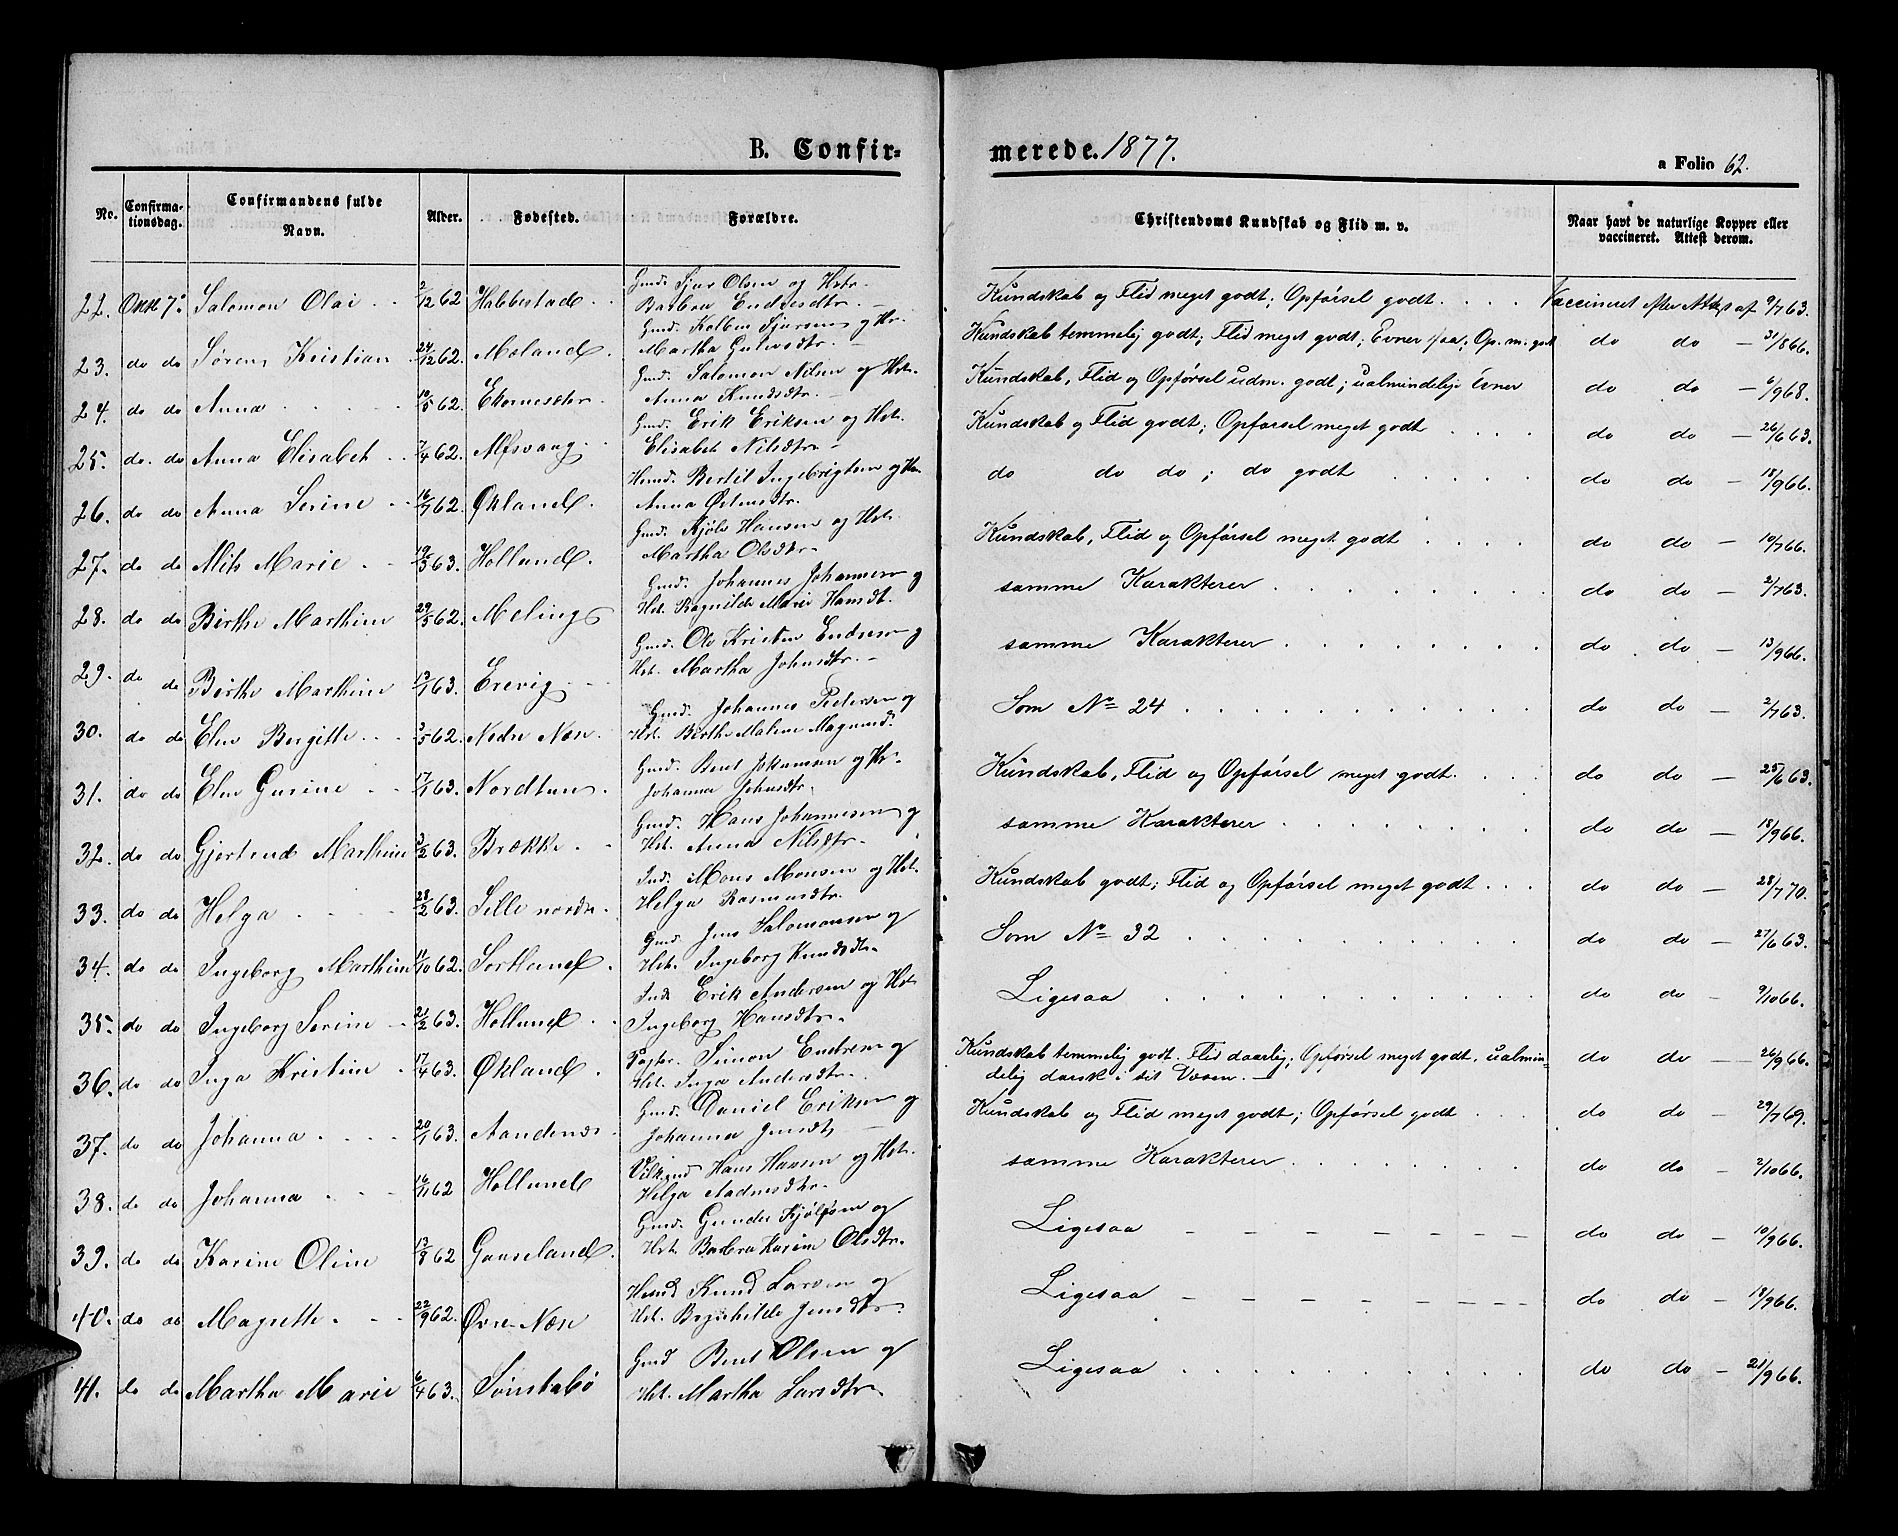 B. Confir-
merede. 1877.
a Folio 62.
No. Confirmationsdag. Confirmandens fulde Navn. Alder. Fødested. Forældre. Christendoms Kundskab og Flid m. v. Naar havt de naturlige Kopper eller vaccineret. Attest derom.
22. Oktb 7de Salomon Olai 2/12 62 Habbestad Gmd. Sjur Olsen og Hstr. Barbra Endresdtr. Kundskab og Flid meget godt; Opførsel godt. Vaccineret efter Attest af 9/7 63.
23. do do Søren Kristian 24/12 62. Møland Gmd. Kolben Sjursen og Hstr. Martha Guleksdtr. Kundskab temmelig godt; Flid meget godt; Evner smaa; Op. m. godt do do 31/8 66.
24. do do Anna 10/5 62. Ekornesæter Gmd. Salomon Nilsen og Hstr. Anna Knudsdtr. Kundskab, Flid og Opførsel udm. godt; ualmindelige Evner do do 6/9 68.
25. do. do Anna Elisabet 7/4 62. Alfsvaag Gmd. Erik Eriksen og Hst. Elisabet Nilsdtr. Kundskab og Flid godt; Opførsel meget godt do do 26/6 63.
26. do do Anna Serine 16/7 62. Økland Husmd. Bertil Ingebrigtsen og Hu. Anna Østensdtr. do do do; do godt do do 18/9 66.
27. do do Nils Marie 19/3 63. Holland. Gmd. Kjøls Hansen og Hst. Martha Olsdtr. Kundskab, Flid og Opførsel meget godt do do 10/7 66.
28. do do Birthe Marthine 29/5 62. Meling Gmd. Johannes Johannesen og Hst. Ragnilde Marie Hansdt. samme Karakterer do do 2/7 63.
29. do do Birthe Marthine 13/1 63. Erevig Gmd. Ole Kristen Endresen og Hst. Martha Johnsdtr. samme Karakterer do do 13/9 66.
30. do do Elen Bergitte 3/5 62. Nedre Næse Gmd. Johannes Pedersen og Hst. Birthe Malene Magnusd. Som No 24 do do 2/7 63.
31. do do Elen Gurine 17/1 63. Nordtun Gmd. Bent Johansen og Hst. Johanna Johnsdtr. Kundskab, Flid og Opførsel meget godt. do do 25/6 63.
32. do do Gjertrud Marthine 3/2 63. Brække Gmd. Hans Johannesen og Hst. Anna Nilsdtr. samme Karakterer do do 18/9 66.
33. do do Helga 23/2 63. Lille nordre Ind. Mons Monsen og Hst. Helga Rasmusdtr. Kundskab godt; Flid og Opførsel meget godt do do 28/7 70.
34. do do Ingeborg Marthine 11/10 62. Sortland. Gmd. Jens Salomonsen og Hst. Ingeborg Knudsdtr. Som No 32 do do 27/6 63.
35. do do Ingeborg Serine 21/2 63. Holland Ind. Erik Andersen og Hst. Ingeborg Hansdtr. Ligesaa do do 9/10 66.
36. do do Inga Kristine 17/4 63. Økland. Pagter. Simon Endresen og Hst. Inga Andersdtr. Kundskab temmelig godt. Flid daarlig; Opførsel meget godt. ualmindelig dorsk i sit Væsen. do do 26/9 66.
37. do do Johanna 20/1 63. Aandenæs Gmd. Daniel Eriksen og Johanna Jensdtr. Kundskab og Flid meget godt; Opførsel godt do do 29/7 69.
38. do do Johanna 16/11 62 Holland Hans Hansen og Hst. Helga Aadnesdtr. samme Karakterer do do 2/10 66.
39. do do Karine Oline 13/8 62 Gaaseland Gmd. Gunder Kjølsen og Hst. Barbra Karine Olsdtr. Ligesaa do do 10/9 66.
40. do do Magrette 22/9 62. Øvre Næse Husmd Knud Larsen og Hst. Ragnhilde Jensdtr. Ligesaa do do 18/9 66.
41. do do Martha Marie 6/4 63. Sønstabø Gmd Bent Olsen og Hst. Martha Larsdtr. Ligesaa do do 21/9 66.